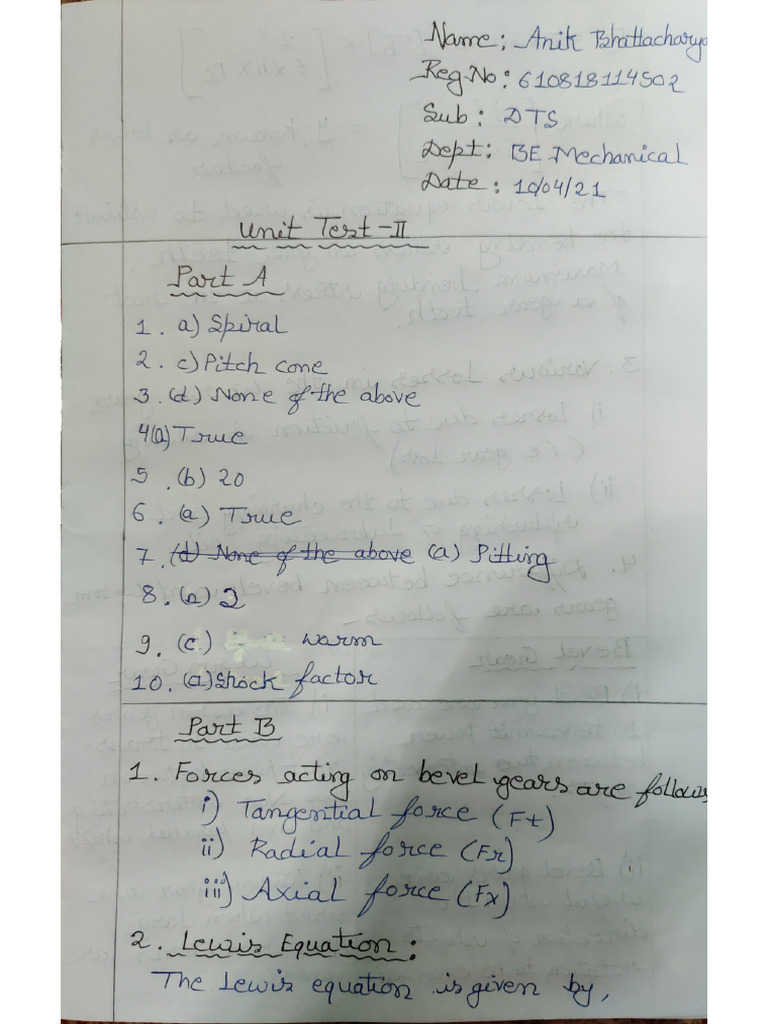 Name: Anik Bhattacharya
Reg.No: 610818114502
Sub: DTS
Dept: BE Mechanical
Date: 10/04/21
Unit Test-II
Part A
1. a) Spiral
2. c) Pitch cone
3. (d) None of the above
4(a) True
5. (b) 20
6. (a) True
7. (d) None of the above (a) Pitting
8. (a) 2
9. (c) warm
10. (a) Shock factor
Part B
1. Forces acting on bevel gears are follows
i) Tangential force (Ft)
ii) Radial force (Fr)
iii) Axial force (Fx)
2. Lewis Equation:
The Lewis equation is given by,